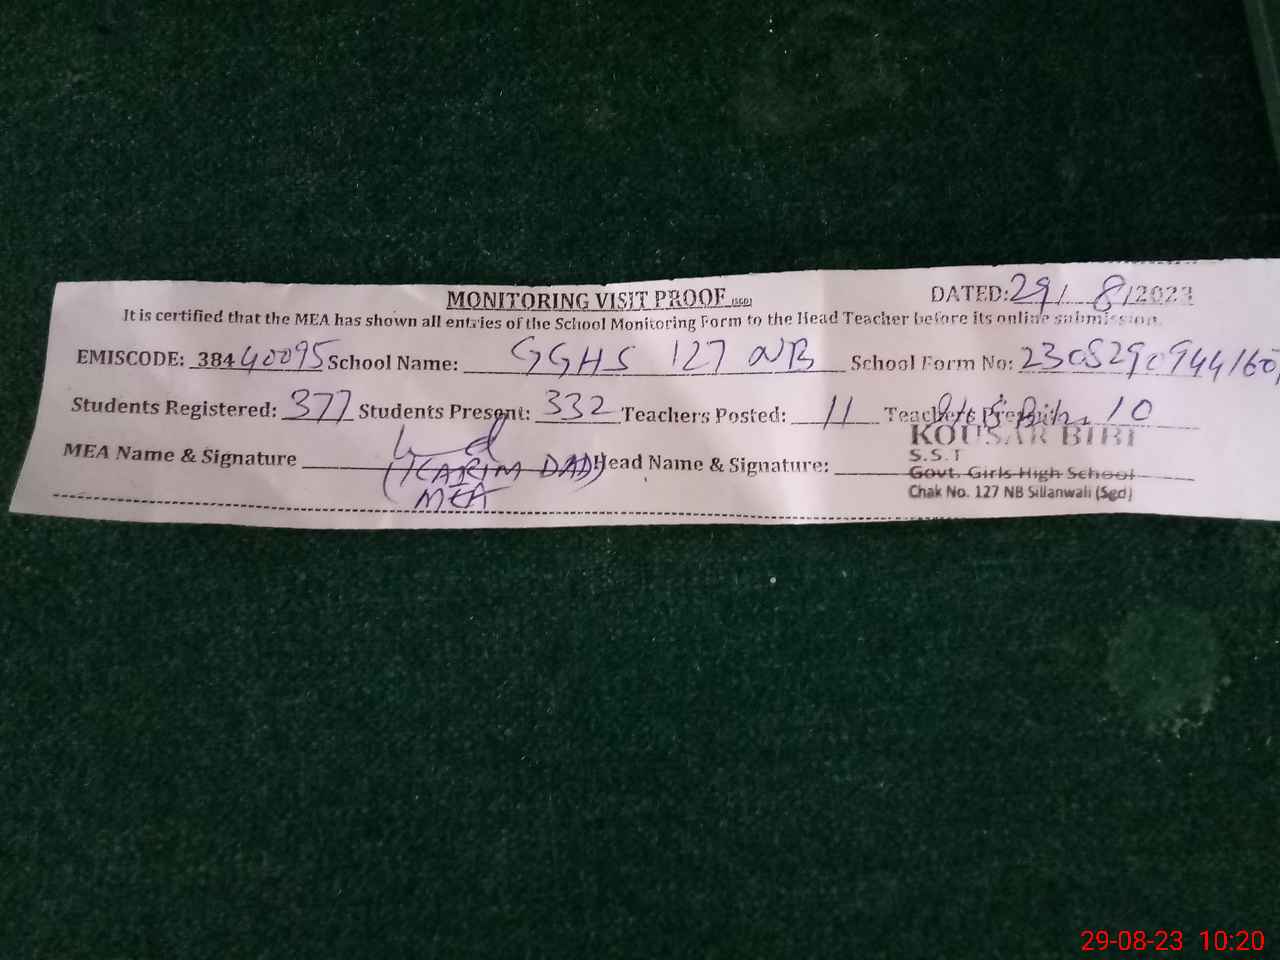 MONITORING VISIT PROOF (SGD) DATED: 29/ 8/2023
It is certified that the MEA has shown all entries of the School Monitoring Form to the Head Teacher before its online submission.
EMISCODE: 38440095 School Name: GGHS 127 NB School Form No:
Students Registered: 377 Students Present: 332 Teachers Posted: 11 Teachers Present: 10
KOUSAR BIBI
S.S.T
MEA Name & Signature (KARIM DAD) Head Name & Signature:
Govt. Girls High School
MEA
Chak No. 127 NB Sillanwali (Sgd)
29-08-23 10:20